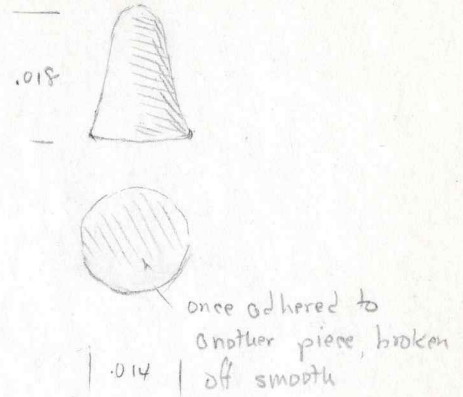 .018
once adhered to
another piece, broken
off smooth
.014